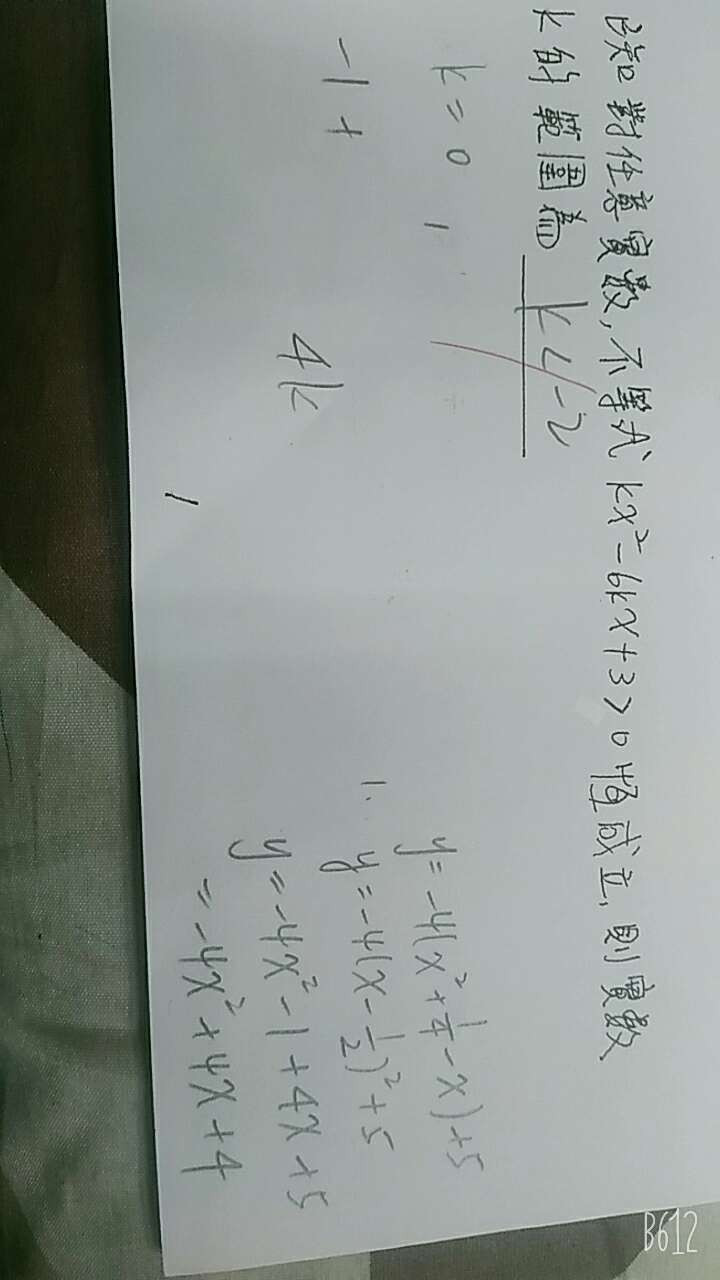 已知對任意實數,不等式 kx²-6kx+3>0恆成立,則實數
k的範圍為 k<-2
k=0
-1+
4k
y=-4(x²+1/4-x)+5
1. y=-4(x-1/2)²+5
y=-4x²-1+4x+5
=-4x²+4x+4
B612